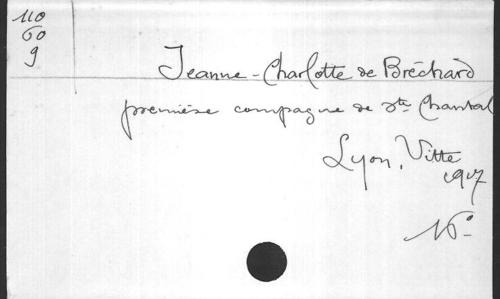 110
60
9
Jeanne-Charlotte de Bréchard
première compagne de Ste Chantal
Lyon, Vitte
1917
16°